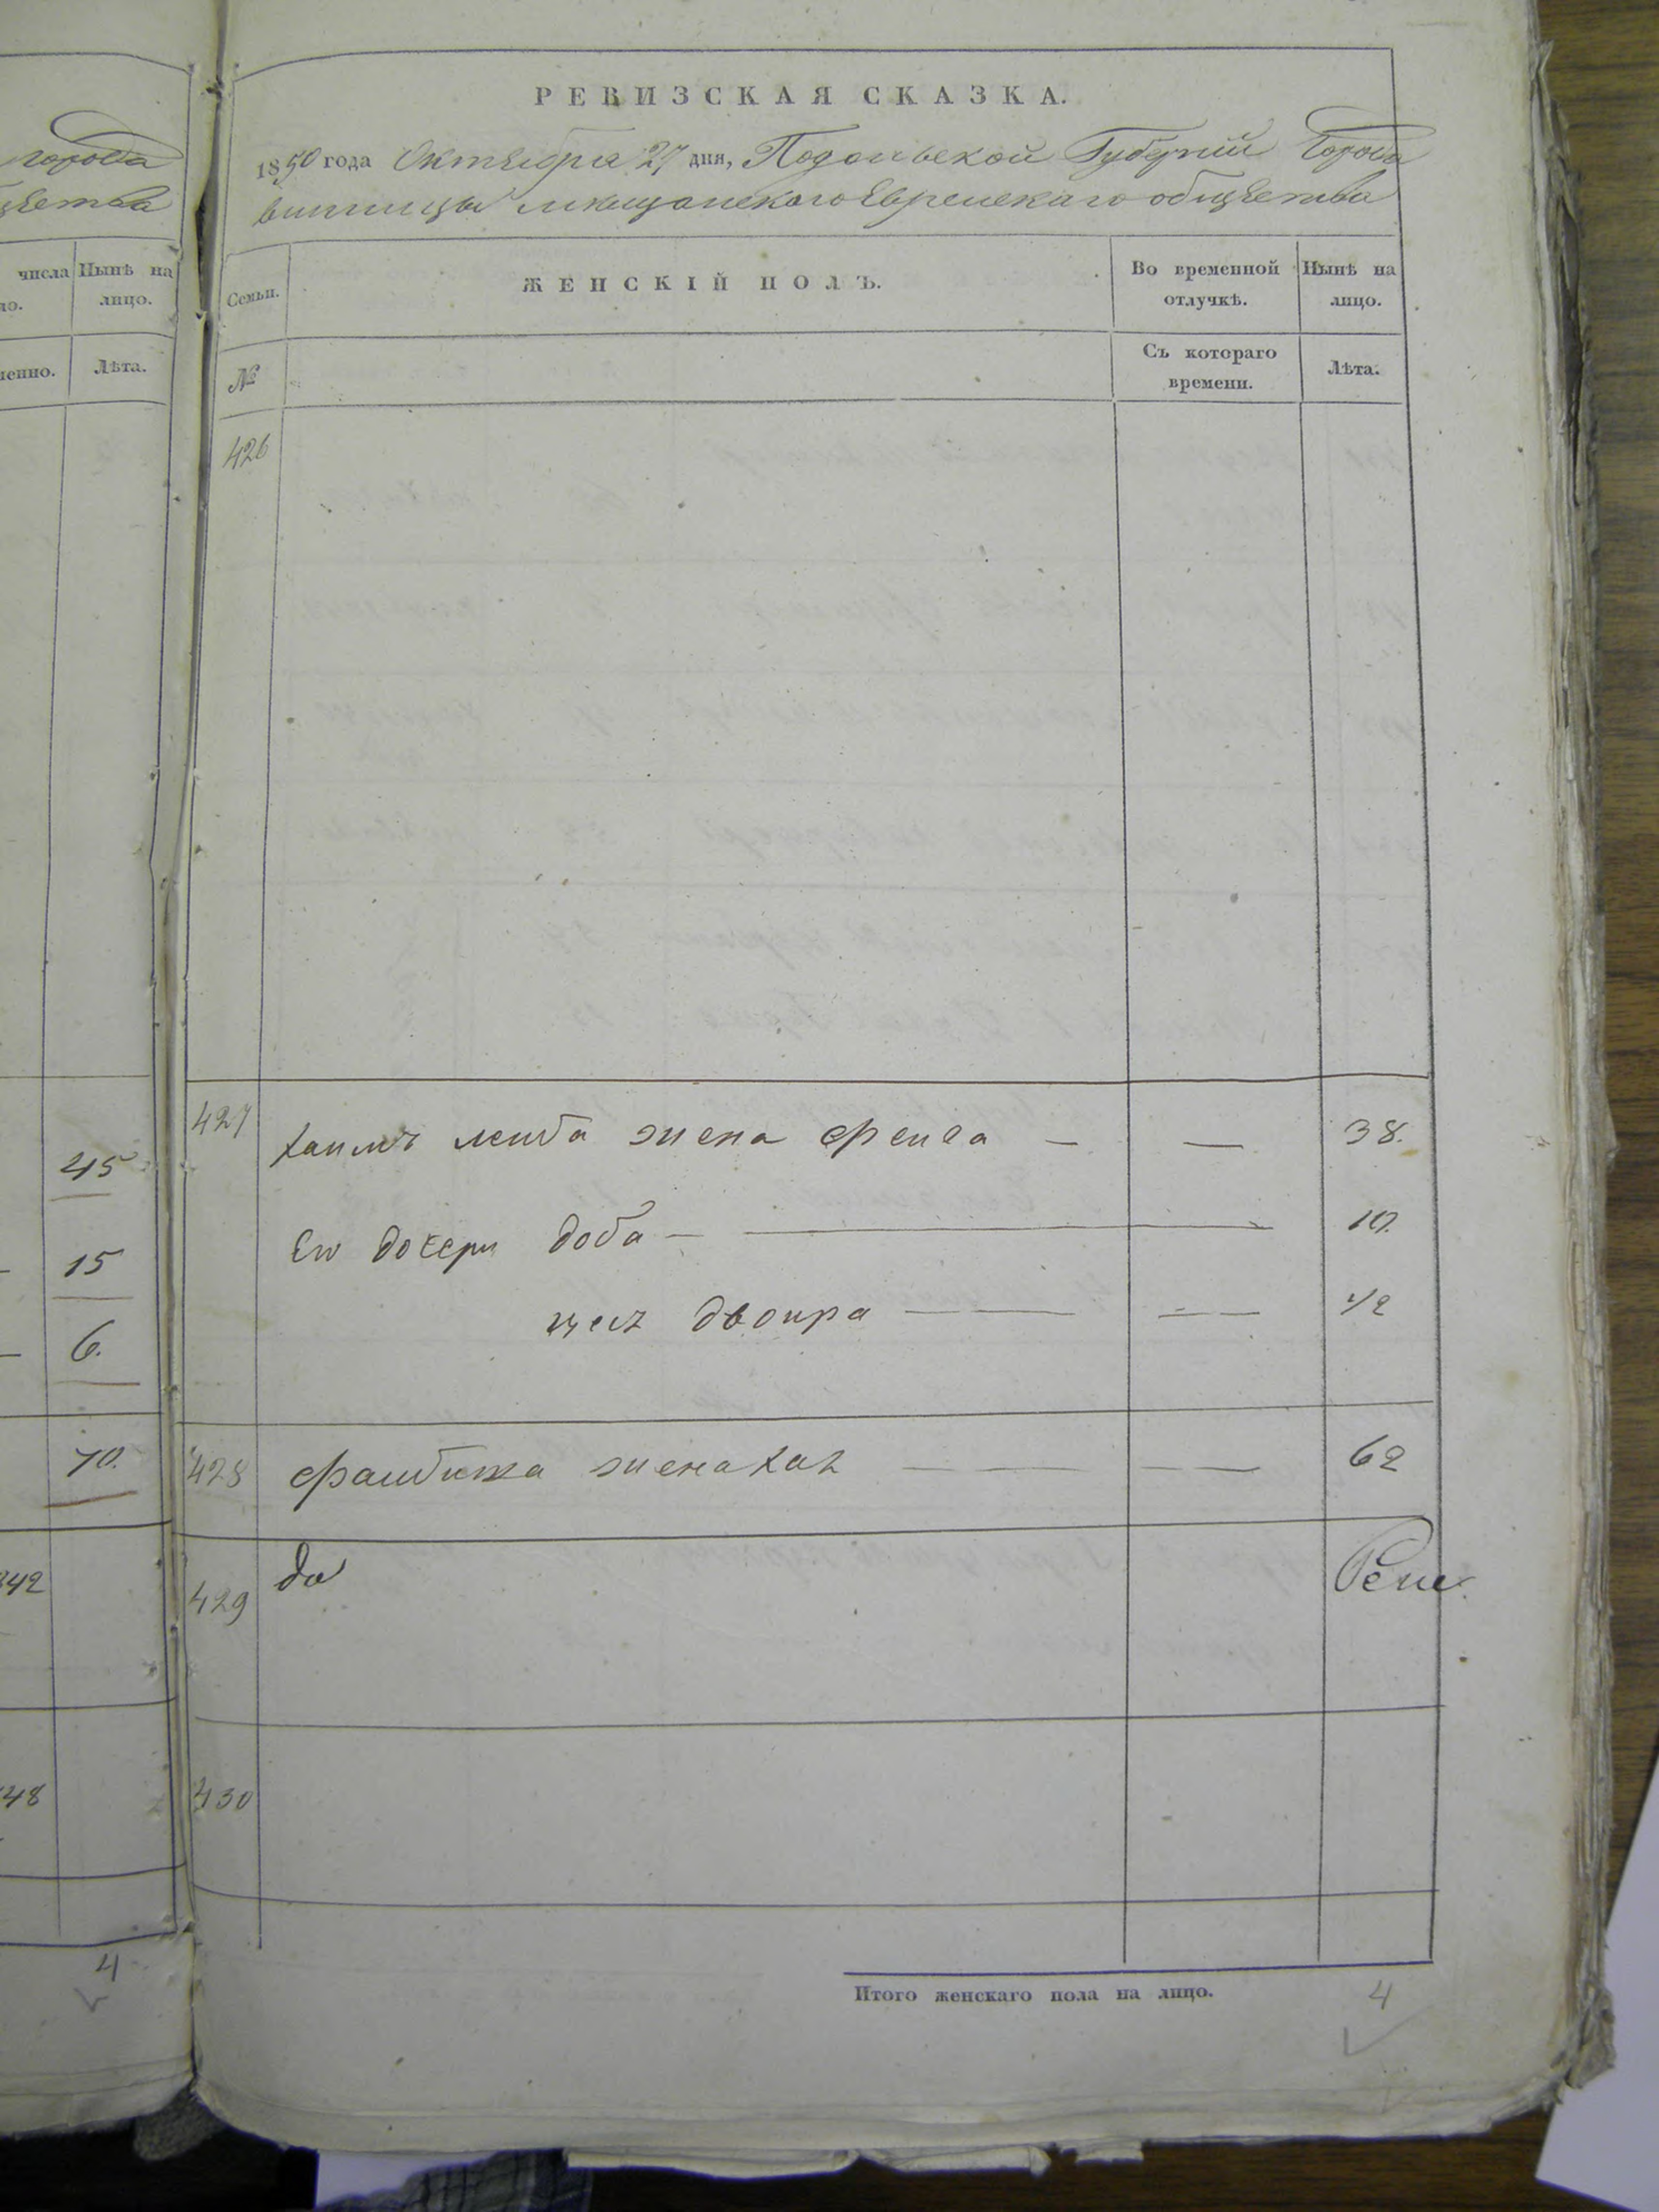 города
числа Нынѣ на
лицо.
Лѣта.
45
15
6.
70.
42
48
4
РЕВИЗСКАЯ СКАЗКА.
1850 года Октября 27 дня, Подольской Губерніи Города
винницы мещанскаго Еврейскаго общества
Семьи.
ЖЕНСКІЙ ПОЛЪ.
Во временной отлучкѣ.
Нынѣ на лицо.
№
Съ котораго времени.
Лѣта.
426
427 хаимъ лейба жена фейга — — 38.
Его дочери доба — — 10.
двойра — — 1/2
428 жена хая — — 62
429 да
430
Итого женскаго пола на лицо. 4